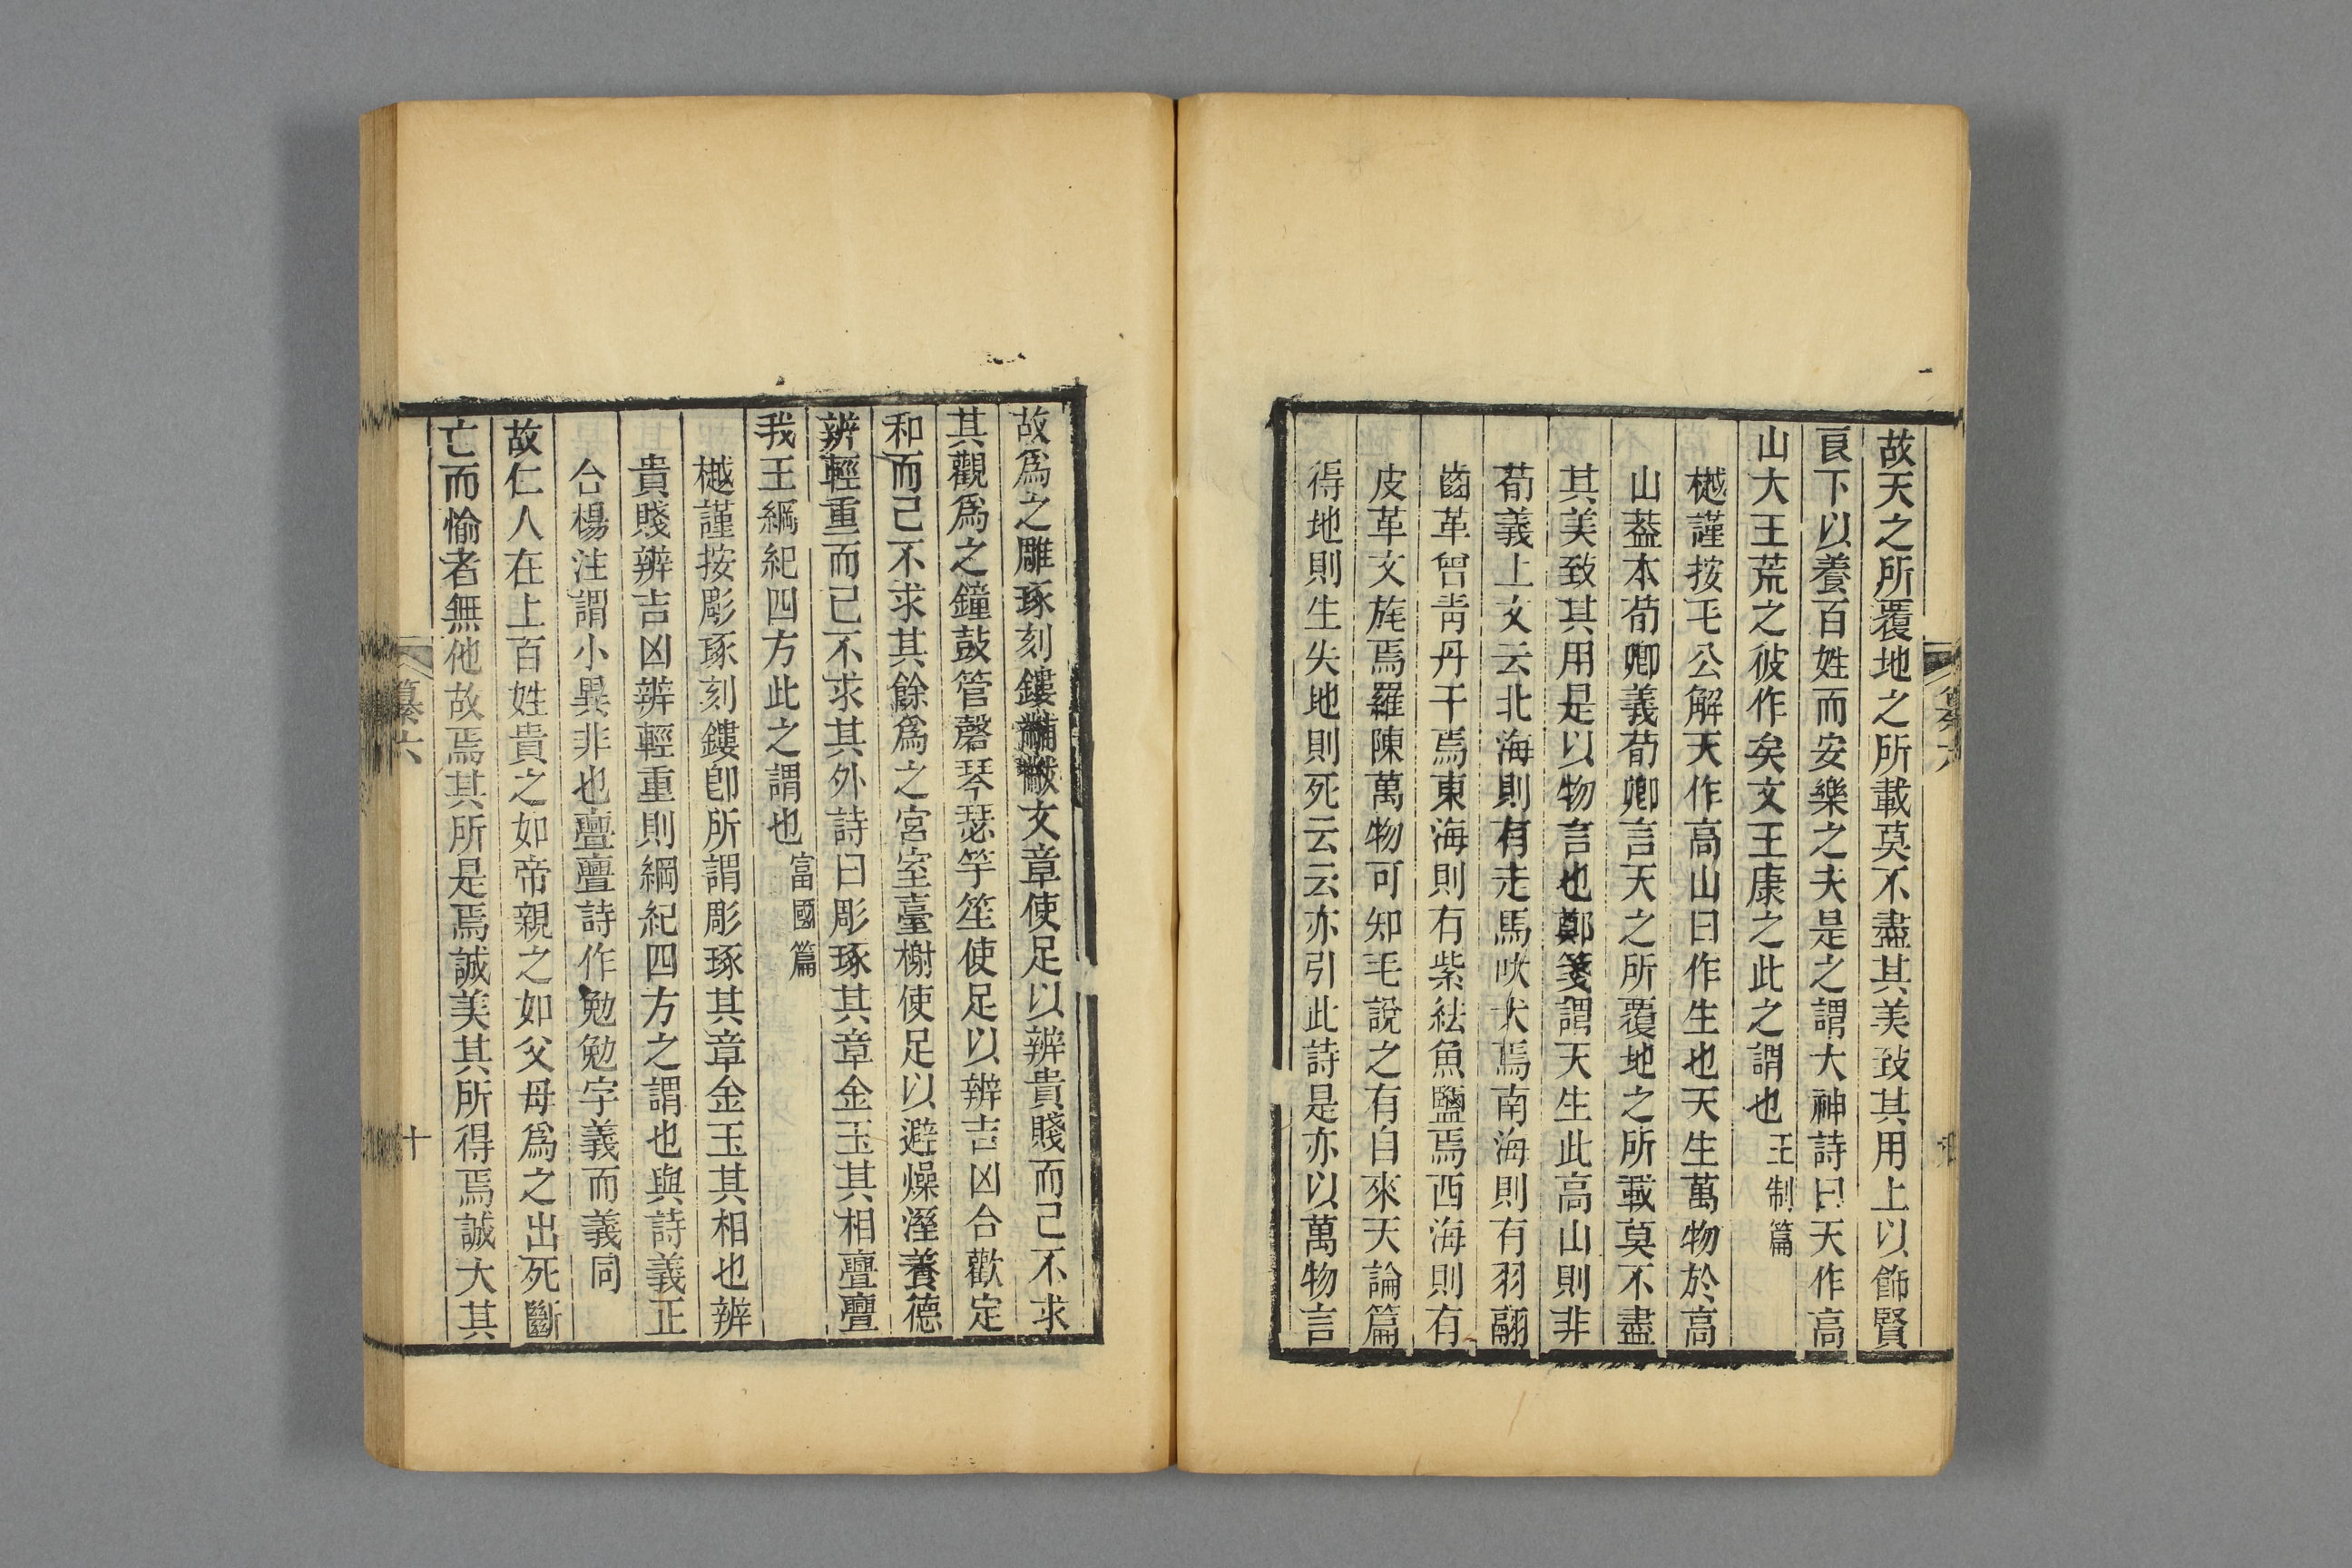 故天之所覆地之所載莫不盡其美致其用上以飾賢
良下以養百姓而安樂之夫是之謂大神詩曰天作高
山大王荒之彼作矣文王康之此之謂也王制篇
樾謹按毛公解天作高山曰作生也天生萬物於高
山葢本荀卿義荀卿言天之所覆地之所載莫不盡
其美致其用是以物言也鄭箋謂天生此高山則非
荀義上文云北海則有走馬吠犬焉南海則有羽翮
齒革曾靑丹干焉東海則有紫紶魚鹽焉西海則有
皮革文旄焉羅陳萬物可知毛說之有自來天論篇
得地則生失地則死云云亦引此詩是亦以萬物言
故爲之雕琢刻鏤黼黻文章使足以辨貴賤而已不求
其觀爲之鐘鼓管磬琴瑟竽笙使足以辨吉凶合歡定
和而已不求其餘爲之宮室臺榭使足以避燥溼養德
辨輕重而已不求其外詩曰彫琢其章金玉其相亹亹
我王綱紀四方此之謂也富國篇
樾謹按彫琢刻鏤卽所謂彫琢其章金玉其相也辨
貴賤辨吉凶辨輕重則綱紀四方之謂也與詩義正
合楊注謂小異非也亹亹詩作勉勉字義而義同
故仁人在上百姓貴之如帝親之如父母爲之出死斷
亡而愉者無他故焉其所是焉誠美其所得焉誠大其
纂六
十